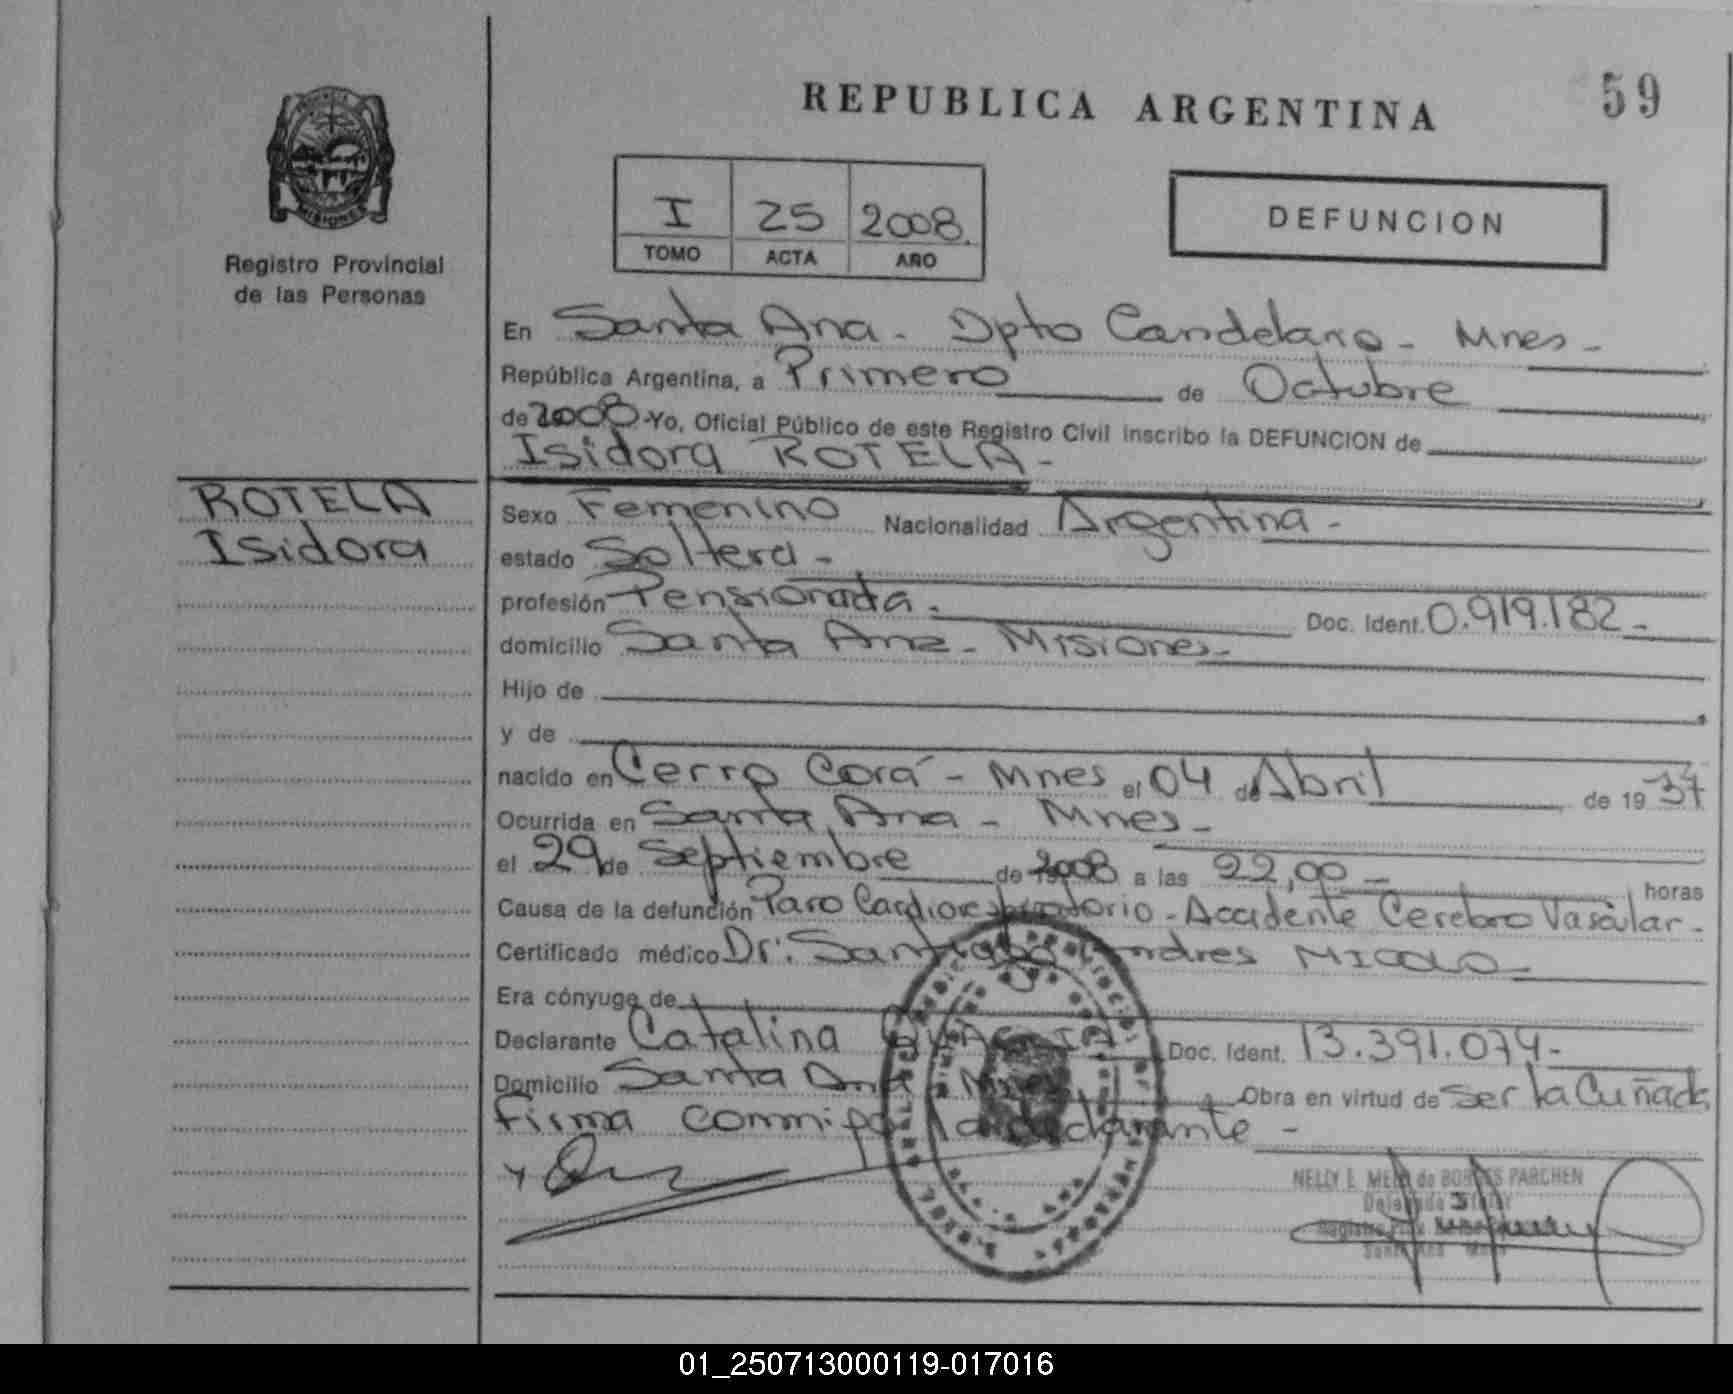 REPUBLICA ARGENTINA
59
PROVINCIA DE MISIONES
Registro Provincial
de las Personas
I 25 2008.
TOMO ACTA AÑO
DEFUNCION
En Santa Ana - Dpto Candelaria - Mnes -
República Argentina, a Primero de Octubre
de 2008 - Yo, Oficial Público de este Registro Civil inscribo la DEFUNCION de
Isidora ROTELA -
ROTELA
Isidora
Sexo Femenino Nacionalidad Argentina -
estado Soltera -
profesión Pensionada. Doc. Ident. 0.919.182 -
domicilio Santa Ana - Misiones -
Hijo de
y de
nacido en Cerro Corá - Mnes el 04 de Abril de 19 37
Ocurrida en Santa Ana - Mnes -
el 29 de Septiembre de 2008 a las 22,00 - horas
Causa de la defunción Paro Cardiorespiratorio - Accidente Cerebro Vascular -
Certificado médico Dr: Santiago Andres -
Era cónyuge de
Declarante Catalina Doc. Ident. 13.391.074 -
Domicilio Santa Ana - Mnes Obra en virtud de ser la Cuñada
Firma conmigo la declarante -
NELLY E. de PARCHEN
Delegada
Santa Ana
01_250713000119-017016